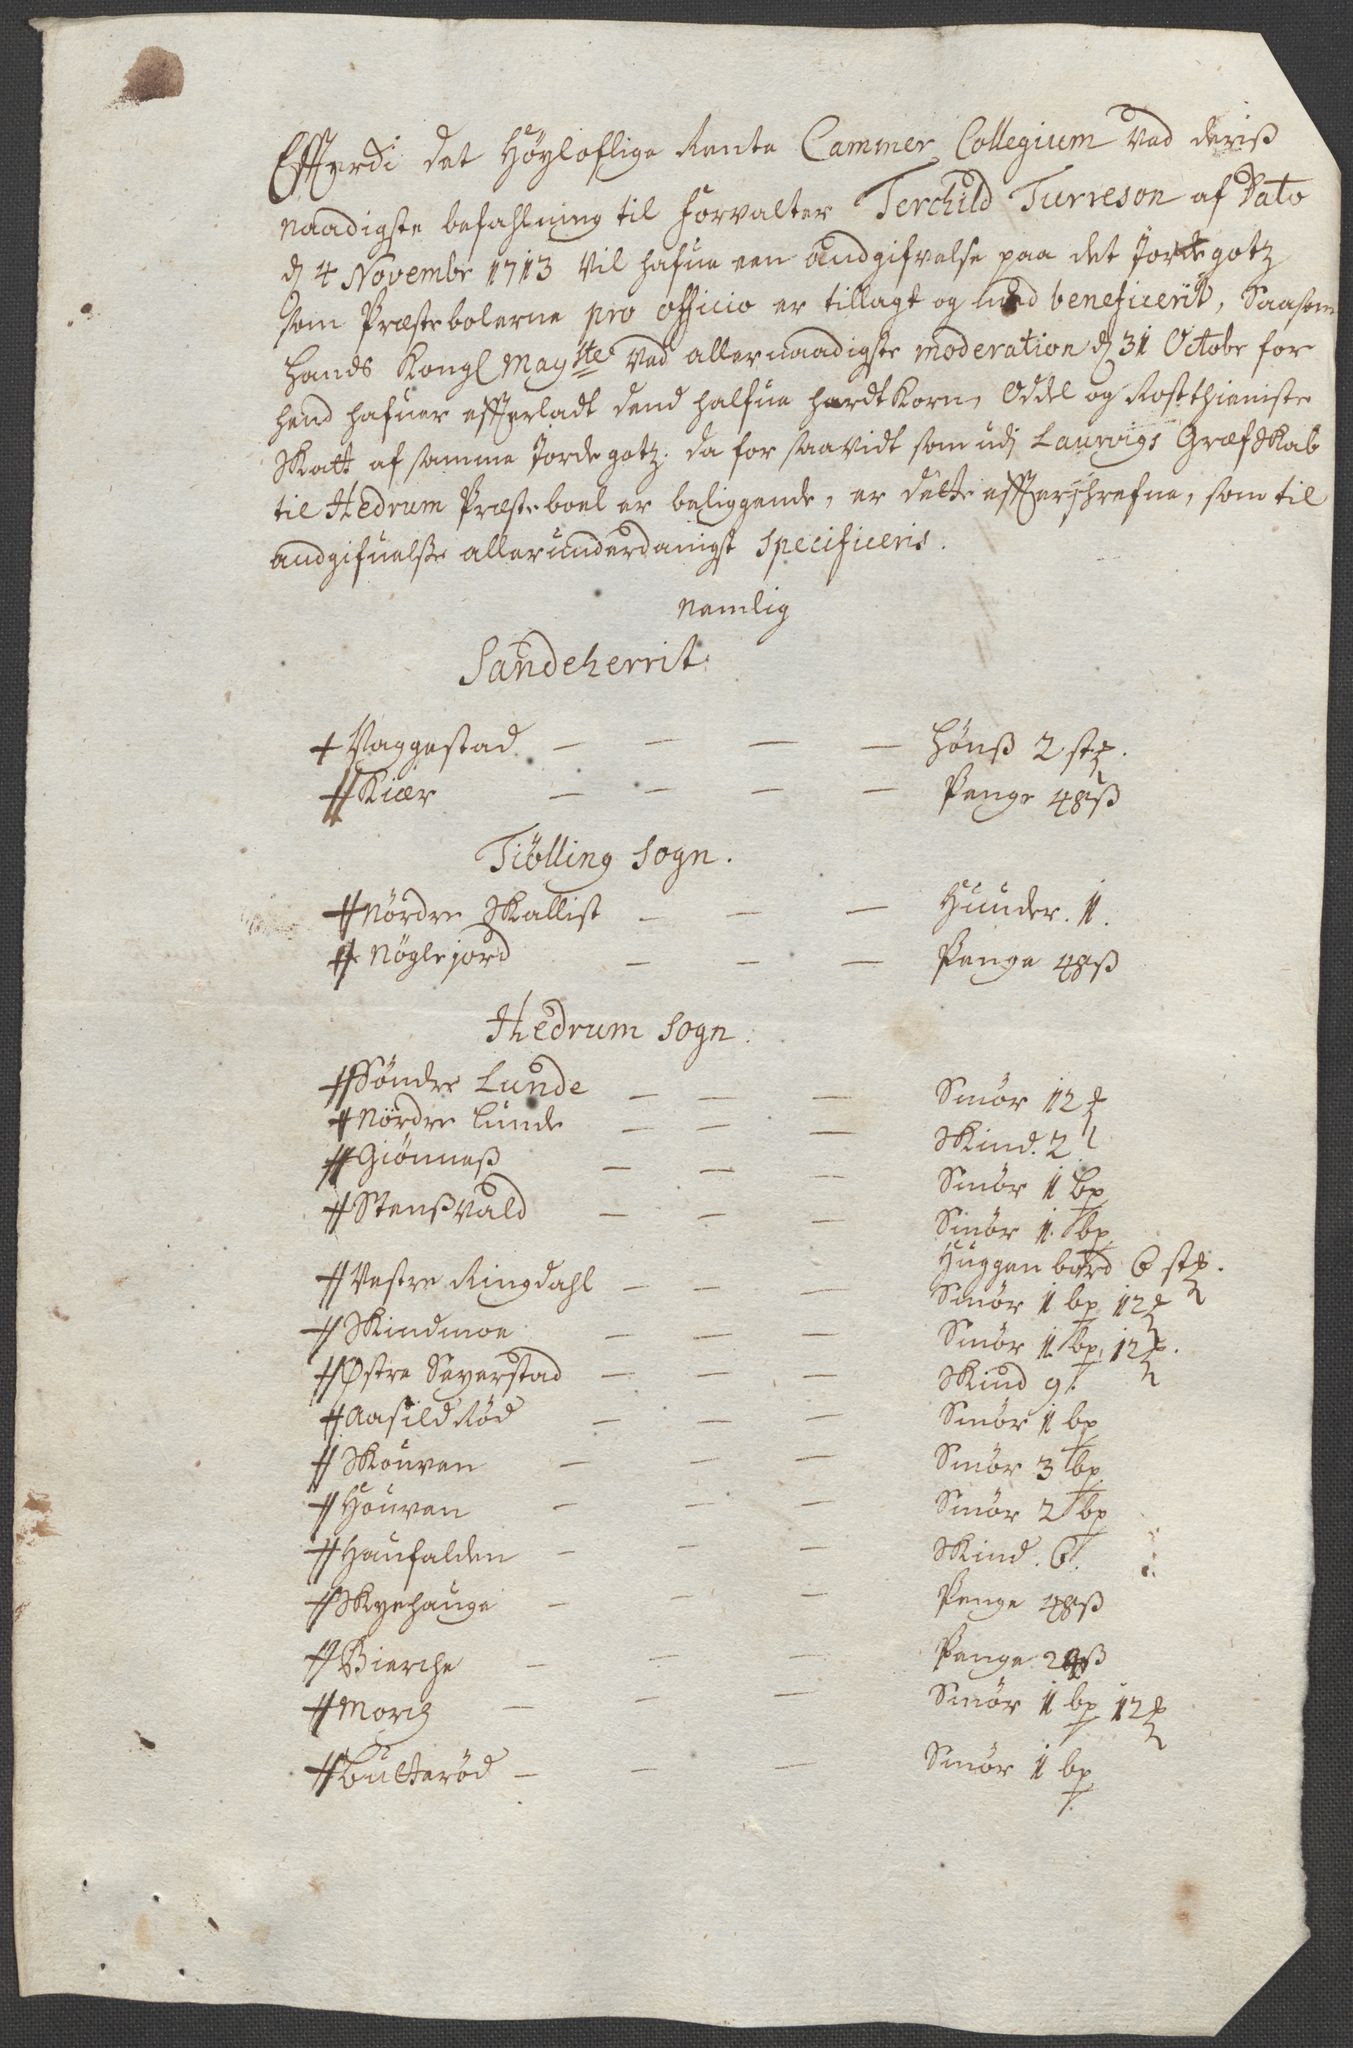 Efferdi det Höyloflige Rente Cammer Collegium ved deriß
naadigste befahlning til forvalter Terchild Turreson af Dato
d 4 Novembr 1713 vil hafue een andgifvelse paa det Jordegotz
som Præstebolerne pro officio er tillagt og med beneficerit, Saasom
Hands Kongl Mayste ved allernaadigste moderation d 31 Octobr for
hend hafuer efferladt dend halfue hardtkorn, Oddel og Rostthieniste
Skatt af samme Jordegotz. da for saavidt som udj Laurvigs Græfskab
til Hedrum Præsteboel er beliggende, er dette effterschrefne, som til
andgifuelse allerunderdanigst specificeris.
Nemlig
Sandeherrit:
+ Vaggestad — — — — Hönß 2 st.
# Kiær — — — — Penge 48 ß
Tiölling Sogn.
# Nördre Skallist — — — Hunder. 1.
# Nöglejord — — — Penge 48 ß
Hedrum Sogn:
# Söndre Lunde — — — Smör 12
# Nördre Lunde — — — Skind. 2
# Giönneß — — — Smör 1 bp
# Stenßvald — — — Smör 1 bp
Huggen bord 6 st.
# Vestre Ringdahl — — — Smör 1 bp 12
# Skindmoe — — — Smör 1 bp 12
# Østre Seyerstad — — — Skind 9.
# Aasild Röd — — — Smör 1 bp
# Skouven — — — Smör 3 bp
# Houven — — — Smör 2 bp
# Haufalden — — — Skind. 6.
# Skyehauge — — — Penge 48 ß
# Bierche — — — Penge 24 ß
# Moriz — — — Smör 1 bp 12
# Bulteröd — — — Smör 1 bp